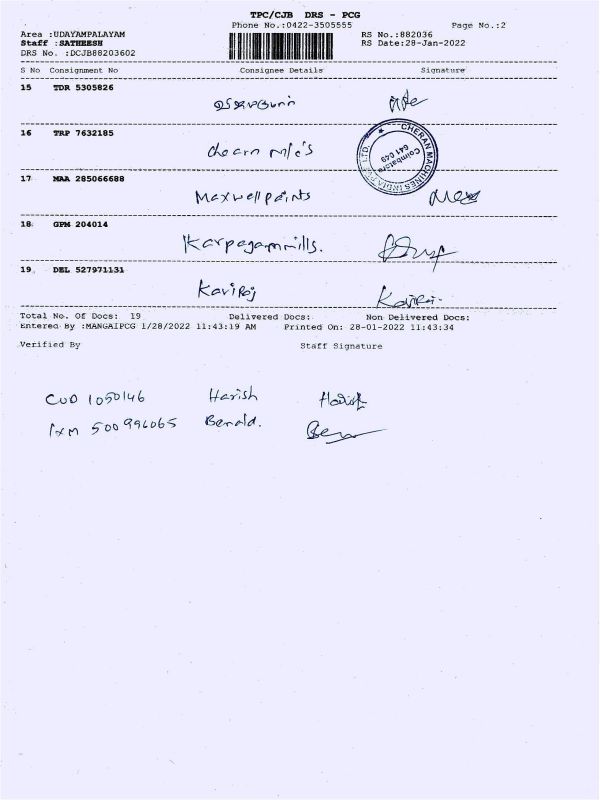 TPC/CJB DRS - PCG
Phone No.:0422-3505555 Page No.:2
Area :UDAYAMPALAYAM RS No.:882036
Staff :SATHEESH RS Date:28-Jan-2022
DRS No. :DCJB88203602
S No Consignment No Consignee Details Signature
15 TDR 5305826
16 TRP 7632185
CHERAN MACHINES INDIA PVT. LTD.
Coimbatore
641 049
17 MAA 285066688 Maxwell paints
18 GPM 204014 Karpagam mills.
19 DEL 527971131 Kaviraj Kaviraj
Total No. Of Docs: 19 Delivered Docs: Non Delivered Docs:
Entered By :MANGAIPCG 1/28/2022 11:43:19 AM Printed On: 28-01-2022 11:43:34
Verified By Staff Signature
CUD 1050146 Harish Harish
IXM 500996065 Benald.